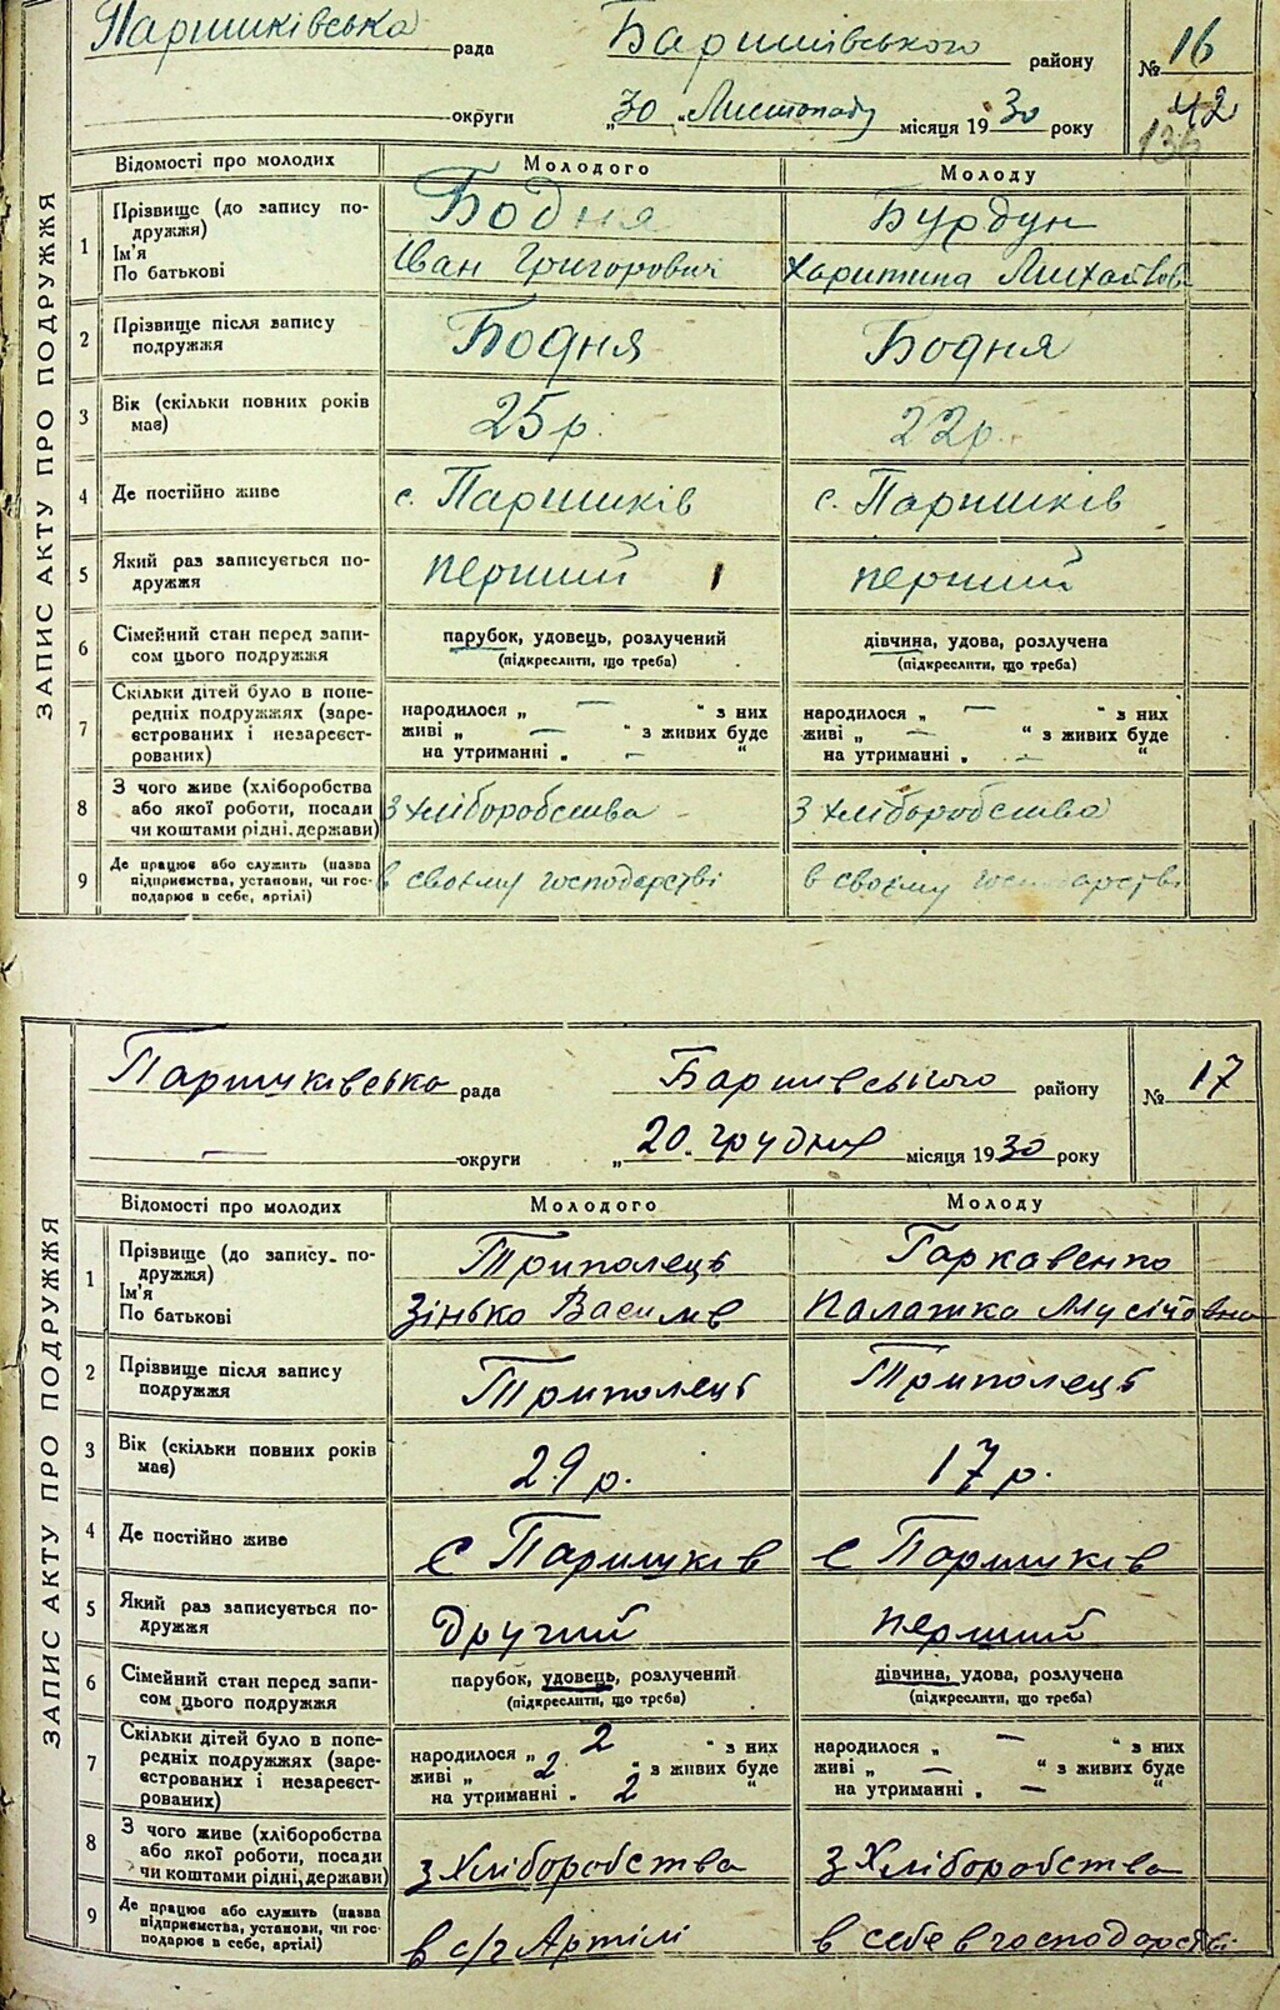 Паришківська рада Баришівського району № 16
округи „30“ Листопаду місяця 1930 року 42
136
ЗАПИС АКТУ ПРО ПОДРУЖЖЯ
Відомості про молодих Молодого Молоду
1 Прізвище (до запису по-
дружжя) Бодня Бурдун
Ім'я
По батькові Іван Григорович Харитина Михайлов
2 Прізвище після запису
подружжя Бодня Бодня
3 Вік (скільки повних років
має) 25 р. 22 р.
4 Де постійно живе с. Паришків с. Паришків
5 Який раз записується по-
дружжя перший перший
6 Сімейний стан перед запи-
сом цього подружжя парубок, удовець, розлучений дівчина, удова, розлучена
(підкреслити, що треба) (підкреслити, що треба)
7 Скільки дітей було в попе-
редніх подружжях (заре-
єстрованих і незареєст-
рованих) народилося „ — “ з них народилося „ — “ з них
живі „ — “ з живих буде живі „ — “ з живих буде
на утриманні „ — “ на утриманні „ — “
8 З чого живе (хліборобства
або якої роботи, посади
чи коштами рідні, держави) З хліборобства З хліборобства
9 Де працює або служить (назва
підприємства, установи, чи гос-
подарює в себе, артілі) в своєму господарстві в своєму господарстві
Паришківська рада Баришівського району № 17
— округи „20“ грудня місяця 1930 року
ЗАПИС АКТУ ПРО ПОДРУЖЖЯ
Відомості про молодих Молодого Молоду
1 Прізвище (до запису по-
дружжя) Триполець Гаркавенко
Ім'я
По батькові Зінько Васильв Палажка Мусіївна
2 Прізвище після запису
подружжя Триполець Триполець
3 Вік (скільки повних років
має) 29 р. 17 р.
4 Де постійно живе с Паришків с Паришків
5 Який раз записується по-
дружжя Другий перший
6 Сімейний стан перед запи-
сом цього подружжя парубок, удовець, розлучений дівчина, удова, розлучена
(підкреслити, що треба) (підкреслити, що треба)
7 Скільки дітей було в попе-
редніх подружжях (заре-
єстрованих і незареєст-
рованих) народилося „ 2 “ з них народилося „ — “ з них
живі „ 2 “ з живих буде живі „ — “ з живих буде
на утриманні „ 2 “ на утриманні „ — “
8 З чого живе (хліборобства
або якої роботи, посади
чи коштами рідні, держави) з Хліборобства З Хліборобства
9 Де працює або служить (назва
підприємства, установи, чи гос-
подарює в себе, артілі) в с/г Артілі в себе в господарстві